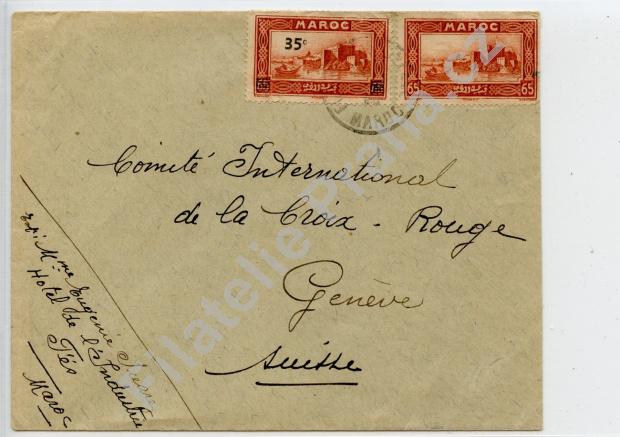 MAROC
35c
MAROC
65 65
MAROC
Comité International
de la Croix - Rouge
Genève
Suisse
Exp: Mme Eugenie
Hotel de l'Industrie
Fés
Maroc
Filatelie Praha.cz